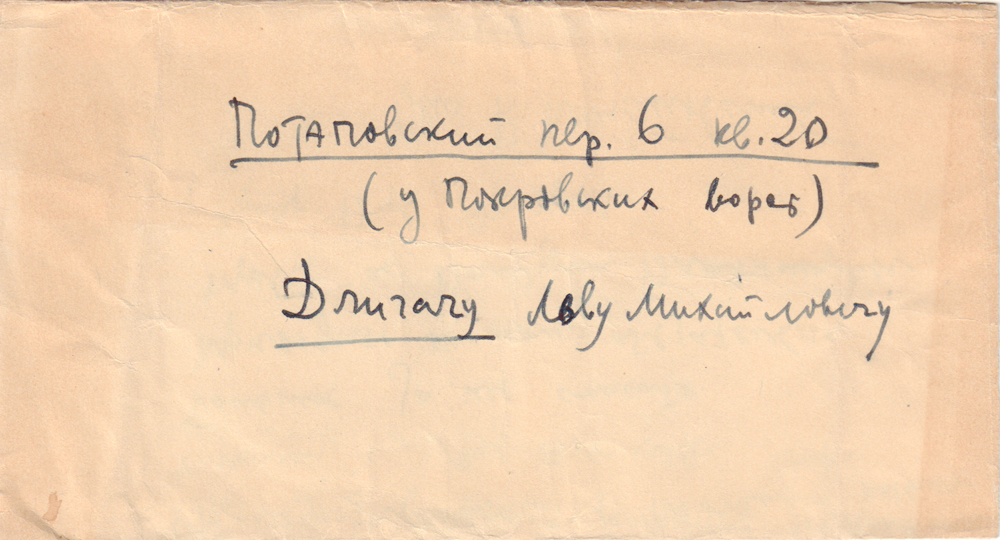 Потаповский пер. 6 кв. 20
(у Покровских ворот)
Длигачу Льву Михайловичу